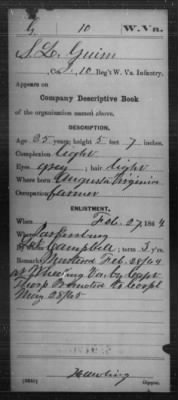 G | 10 | W. Va.
S. L. Guinn
Co. , 10 Reg't W. Va. Infantry.
Appears on
Company Descriptive Book
of the organization named above.
DESCRIPTION.
Age 25 years; height 5 feet 7 inches.
Complexion Light
Eyes ; hair light
Where born Augusta Virginia
Occupation farmer
ENLISTMENT.
When Feb. 27, 1864
Where Parkersburg
By whom Campbell; term 3 y'rs.
Remarks: Mustered Feb. 28/64
at Wheeling Va. by Capt
Thorp Promoted to Corpl
May 28/65
Copyist.